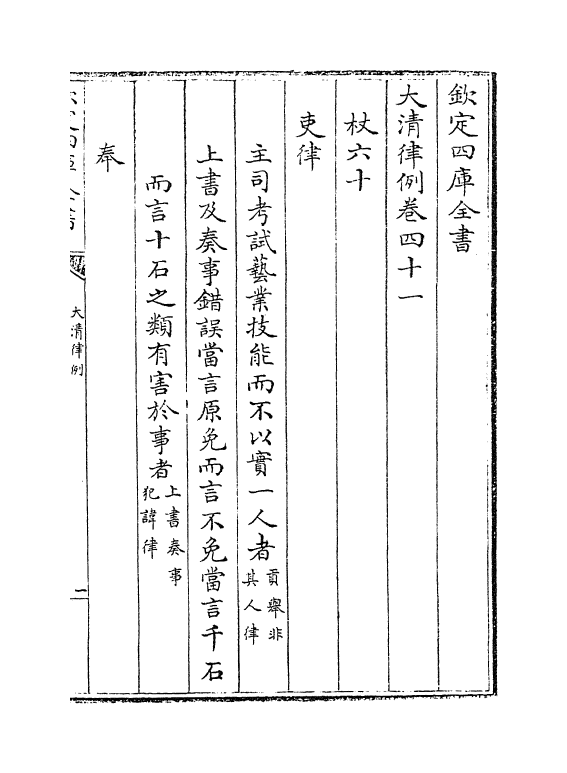 欽定四庫全書
大清律例卷四十一
杖六十
吏律
主司考試藝業技能而不以實一人者貢舉非其人律
上書及奏事錯誤當言原免而言不免當言千石
而言十石之類有害於事者上書奏事犯諱律
奉
大清律例
一